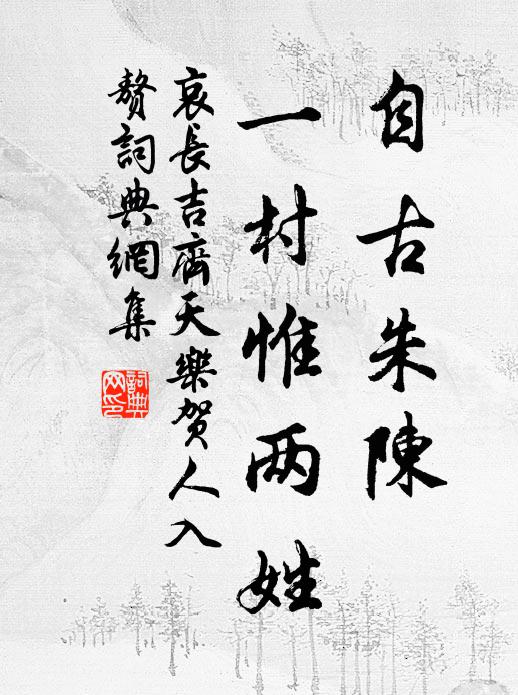 自古朱陳
一村惟两姓
哀長吉齊天樂賀人入
贅詞典網集
詞典网印